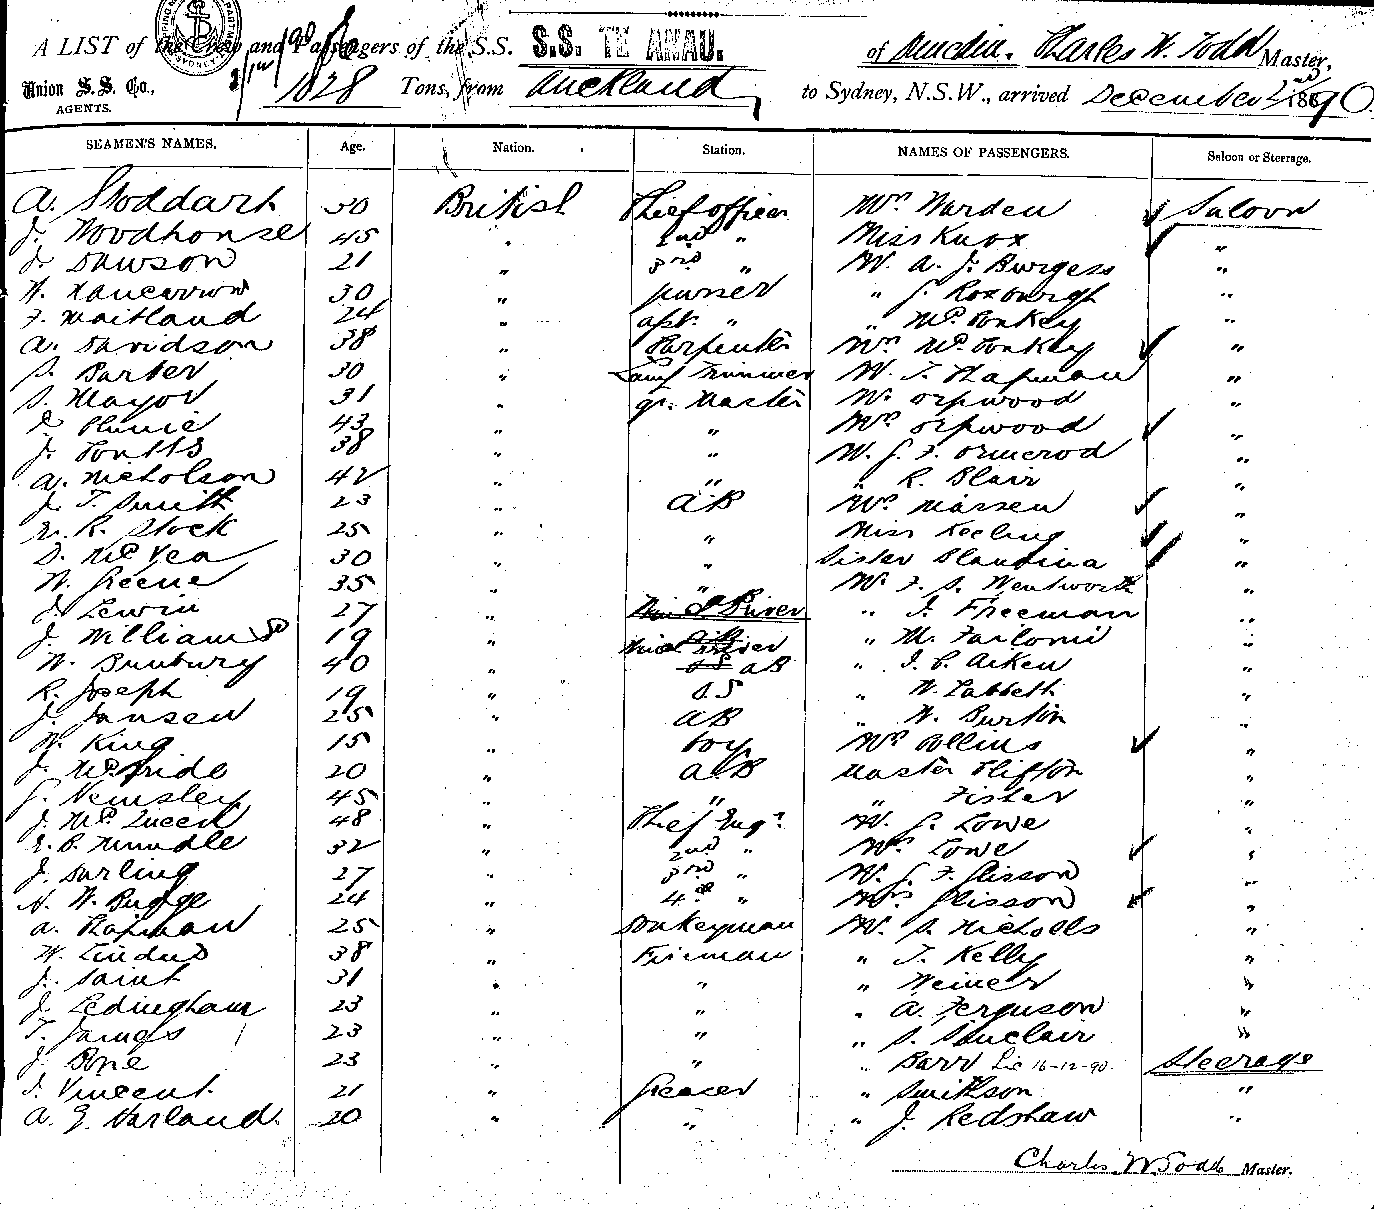 A LIST of the Crew and Passengers of the S.S. S.S. TE ANAU. of Dunedin, Charles W. Todd Master,
Union S. S. Co., AGENTS. 1828 Tons, from Auckland to Sydney, N.S.W., arrived December 2nd 1890.
SEAMEN'S NAMES. Age. Nation. Station. NAMES OF PASSENGERS. Saloon or Steerage.
A. Stoddart 30 British Chief officer Mrs Warden Saloon
J. Woodhouse 45 " 2nd " Miss Knox "
J. Dawson 21 " 3rd " Mr A. J. Burgess "
W. 30 " purser " G. Roxburgh "
F. Maitland 24 " asst. " " McConkey "
A. Davidson 38 " Carpenter Mrs McConkey "
S. Barter 30 " Lamp Trimmer Mr T. Chapman "
S. Mayor 31 " qr. Master Mr Orpwood "
43 " " Mrs Orpwood "
J. Coutts 38 " " Mr G. F. Ormerod "
A. Nicholson 42 " " " R. Blair "
J. T. Smith 23 " A B Mrs Massen "
R. Stock 25 " " Miss Keeling "
D. McVea 30 " " Sister Blandina "
W. Greene 35 " " Mr F. S. Wentworth "
J. Lewin 27 " " J. Freeman "
J. Williams 19 " " M. Failomi "
W. Bunbury 40 " A B " J. C. Aiken "
R. Joseph 19 " O.S " W. Labbeth "
J. Jansen 25 " A B " W. Burton "
W. King 15 " boy Mrs Collins "
J. McBride 20 " A.B Master Clifton "
G. Hemsley 45 " " " Fisher "
J. McQueen 48 " Chief Engr. Mr G. Lowe "
E. B. Mundle 32 " 2nd " Mrs Lowe "
J. Darling 27 " 3rd " Mr G. F. Glisson "
A. W. Budge 24 " 4th " Mrs Glisson "
A. Chapman 25 " Donkeyman Mr S. Nicholls "
W. Lindus 38 " Fireman " T. Kelly "
J. Saint 31 " " " Weiner "
J. Ledingham 23 " " " A. Ferguson "
T. James 23 " " " S. Sinclair "
J. Bone 23 " " " Barr 16-12-90. Steerage
J. Vincent 21 " Greaser " Smithson "
A. G. Harland 20 " " " J. Redshaw "
Charles W. Todd Master.